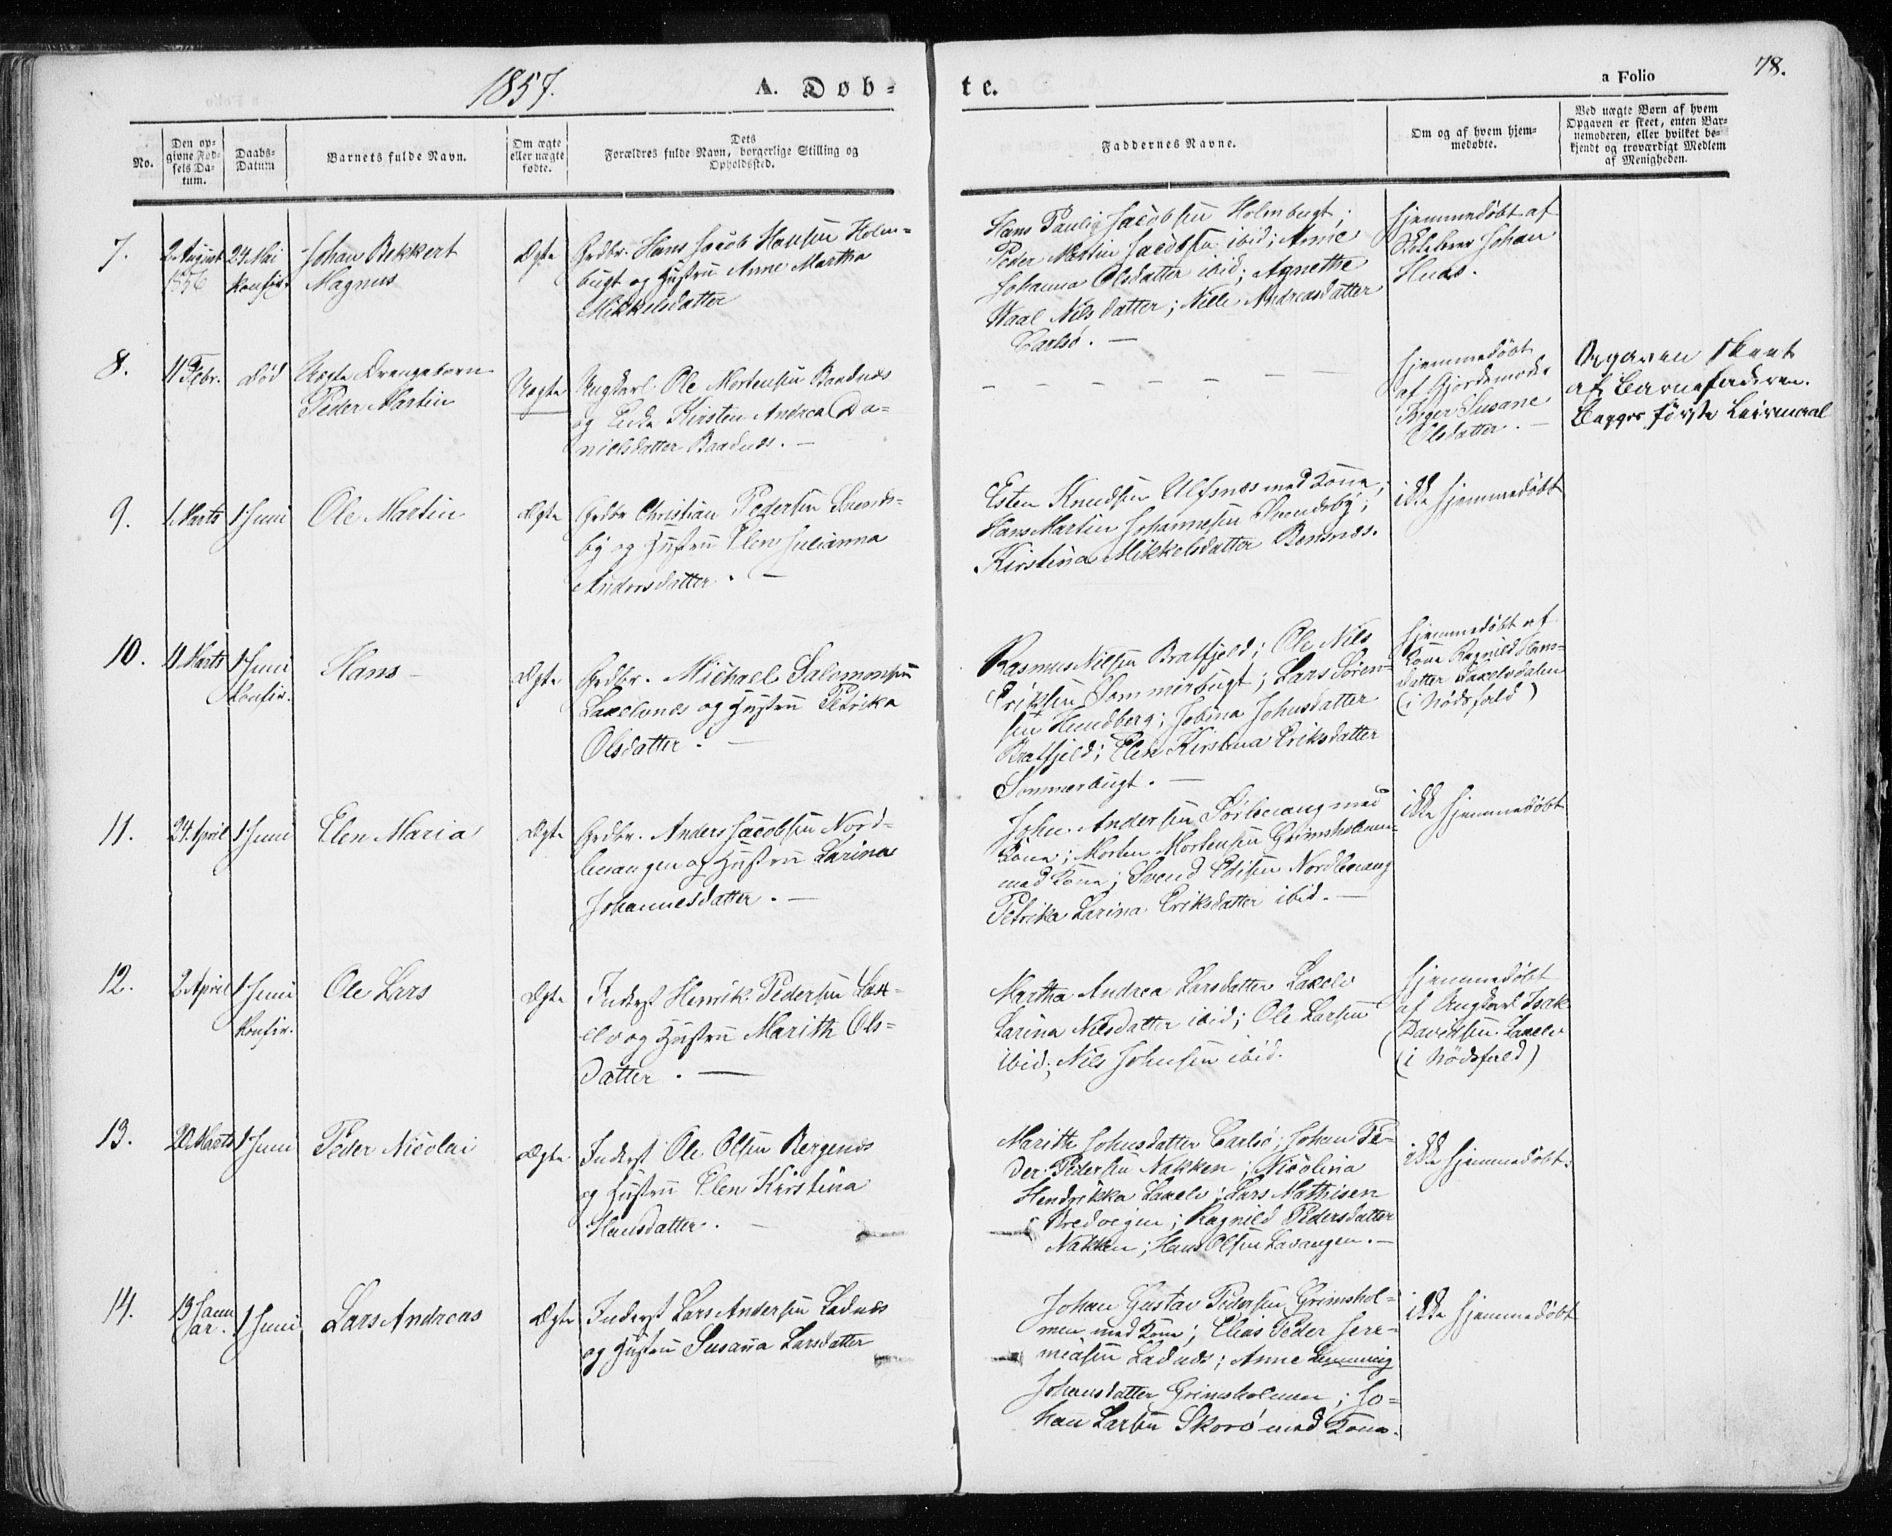 1857.
A. Døb-
te.
a Folio
78.
No.
Den op-
givne Fød-
sels Da-
tum.
Daabs-
Datum
Barnets fulde Navn.
Om ægte
eller uægte
fødte.
Dets
Forældres fulde Navn, borgerlige Stilling og
Opholdssted.
Faddernes Navne.
Om og af hvem hjem-
medøbte.
Ved uægte Børn af hvem
Opgaven er skeet, enten Bar-
nemoderen, eller hvilket be-
kjendt og troværdigt Medlem
af Menigheden.
7.
2 August
1856
24 Mai
Konfir.
Johan Bekkert
Magnus
Ægte
Grdbr. Hans Jacob Hansen Holm-
bugt og Hustru Anne Martha
Mikkelsdatter
Hans Paulig Jacobsen Holmbugt;
Peder Martin Jacobsen ibid; Anne
Johanna Olsdatter ibid; Agnethe
Waal Nilsdatter; Nille Andreasdatter
Carlsø. —
Hjemmedøbt af
Skolelærer Johan
8.
4 Febr.
død
Uægte Drengebarn
Peder Martin
Uægte
Ungkarl Ole Mortensen Baadnæs
og Enke Kirsten Andrea Da-
nielsdatter Baadnæs. —
Hjemmedøbt
af Gjordemoder
Inger Susane
Olsdatter. —
Opgaven skeet
af Barnefaderen.
Begges første Leiermaal
9.
1 Marts
1 Juni
Ole Martin
Ægte
Grdbr Christian Pedersen Svends-
by og Hustru Elen Julianna
Andersdatter. —
Esten Knudsen Ulfsnes med Kone;
Hans Martin Johannesen Svendsby;
Kirstina Mikkelsdatter Bensnæs.
ikke hjemmedøbt
10.
4 Marts
1 Juni
Konfir.
Hans —
Ægte
Grdbr. Michael Salomonsen
Laxelvnes og Hustru Petrika
Olsdatter. —
Rasmus Nilsen Bratfjeld; Ole Nils
Eriksen Sommerbugt; Lars Søren-
sen Hundberg; Jobina Johnsdatter
Bratfjeld; Elen Kirstina Eriksdatter
Sommerbugt. —
Hjemmedøbt af
Kone Ragnild Hans-
datter Laxelvdalen
(i Nødsfald)
11.
24 April
1 Juni
Elen Maria
Ægte
Grdbr. Anders Jacobsen Nord-
levangen og Hustru Larina
Johannesdatter. —
John Andersen Sørlevang med
Kone; Morten Mortensen Grimsholmen
med Kone; Svend Edisen Nordlevang
Petrika Larina Eriksdatter ibid. —
ikke hjemmedøbt
12.
2 April
1 Juni
Konfir.
Ole Lars
Ægte
Inderst Henrik Pedersen Lax-
elv og Hustru Marith Ols-
datter. —
Martha Andrea Larsdatter Laxelv
Larina Nilsdatter ibid; Ole Larsen
ibid; Nils Johnsen ibid.
Hjemmedøbt
af Ungkarl Isak
Davidsen Laxelv
(i Nødsfald)
13.
20 Marts
1 Juni
Peder Nicolai
Ægte
Inderst Ole Olsen Bergenæs
og Hustru Elen Kirstina
Hansdatter. —
Marith Johnsdatter Carlsø; Johan Pe-
der Pedersen Nakken; Nicolina
Hendrikka Laxelv; Lars Mathisen
Bredveigen; Ragnild Pedersdatter
Nakken; Hans Olsen Lavangen. —
ikke hjemmedøbt.
14.
13 Janu
ar.
1 Juni
Lars Andreas
Ægte
Inderst Lars Andersen Ladnæs
og Hustru Susanna Larsdatter
Johan Gustav Pedersen Grimshol-
men med Kone; Elias Peder Jere-
miasen Ladnæs; Anne
Johansdatter Grimsholmen; Jo-
han Larsen Skorø med Kone.
ikke hjemmedøbt